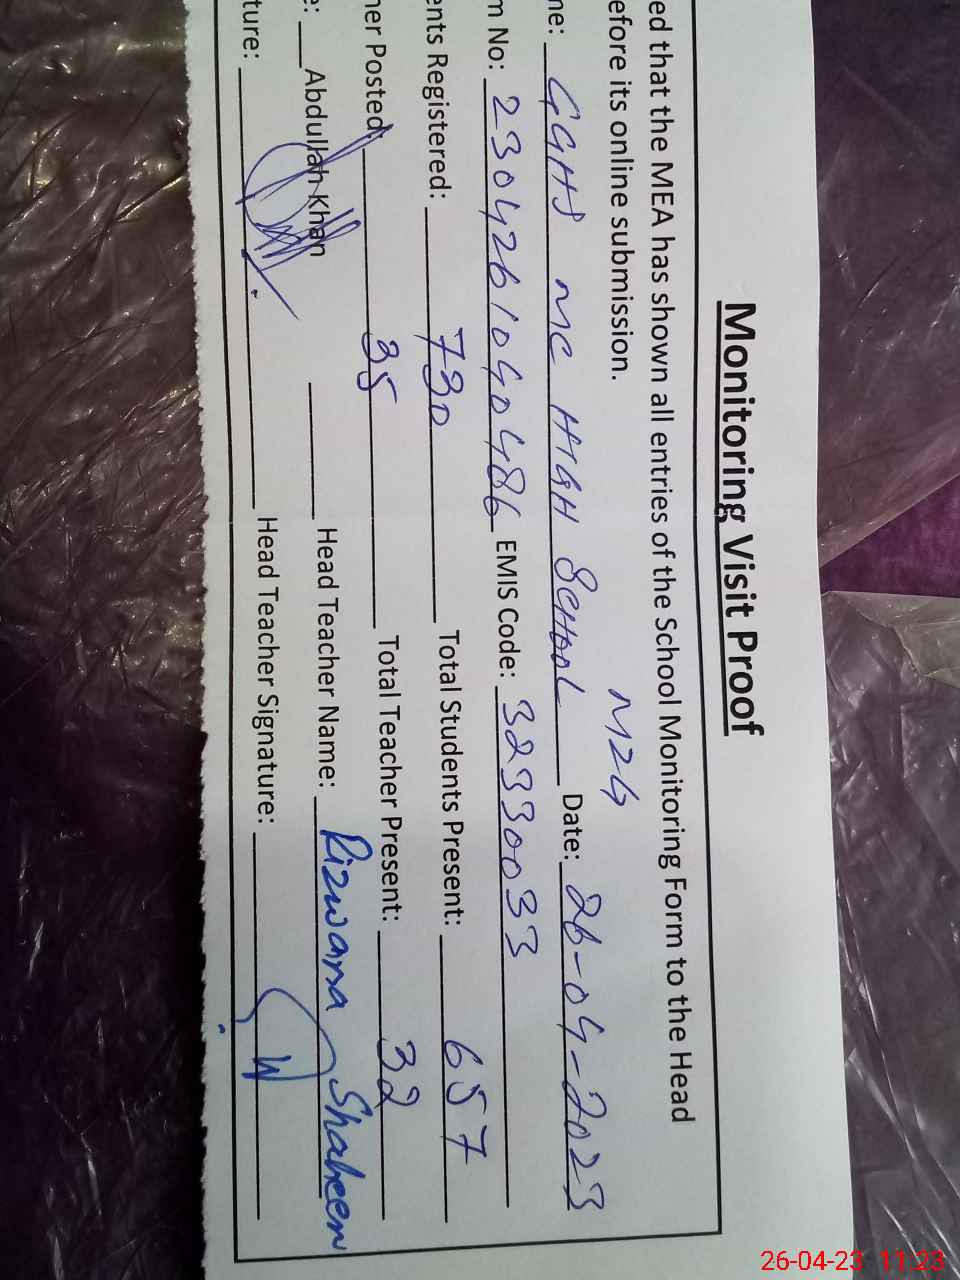 Monitoring Visit Proof
ed that the MEA has shown all entries of the School Monitoring Form to the Head
efore its online submission.
MZG
ne: GGHS MC HIGH SCHOOL Date: 26-04-2023
m No: 2304261040486 EMIS Code: 32330033
ents Registered: 730 Total Students Present: 657
her Posted: 35 Total Teacher Present: 32
e: Abdullah Khan Head Teacher Name: Rizwana Shaheen
ture: Head Teacher Signature:
26-04-23 11:23